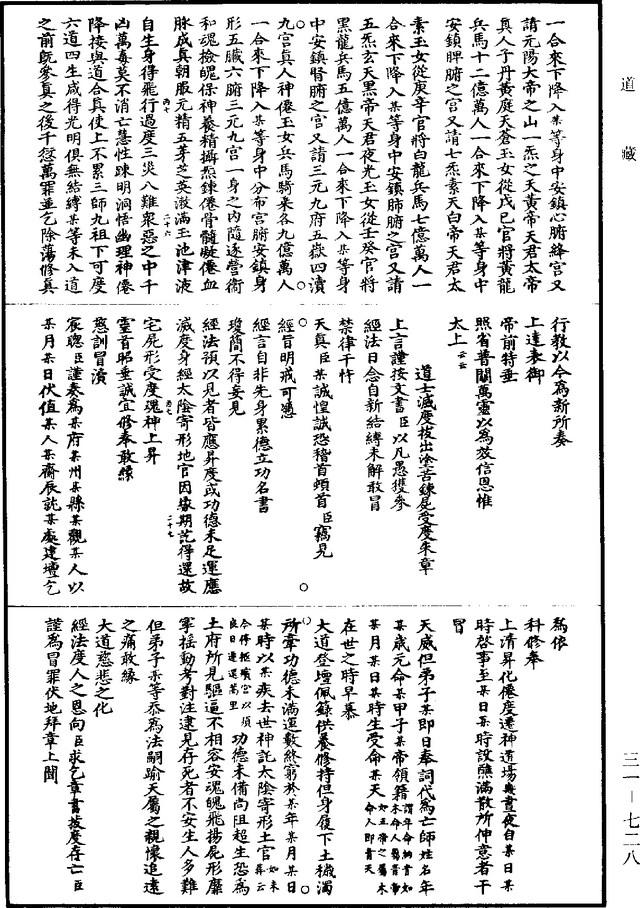 道藏
一合來下降入某等身中安鎮心腑絳宮又
請元陽大帝之山一炁之天黃帝天君太帝
真人子丹黃庭天蒼玉女從戊巳官將黃龍
兵馬十二億萬人一合來下降入某等身中
安鎮脾腑之宮又請七炁素天白帝天君太
素玉女從庚辛官將白龍兵馬七億萬人一
合來下降入某等身中安鎮肺腑之宮又請
五炁玄天黑帝天君夜光玉女從壬癸官將
黑龍兵馬五億萬人一合來下降入某等身
中安鎮腎腑之宮又請三元九府五嶽四瀆
九宮真人神僊玉女兵馬騎乘各九億萬人
一合來下降入某等身中分布宮腑安鎮身
形五臟六腑三元九宮一身之內隨逐營衛
和魂檢魄保神養精攝炁鍊僊骨髓凝僊血
脉成真朝服元精五芽芝英漱滿玉池津液
自生身得飛行過度三災八難衆惡之中千
凶萬毒莫不消亡慧性踈明洞悟幽理神僊
降接與道合真使上不累三師九祖下可度
六道四生咸得光明俱無結縛某等未入道
之前旣參真之後千愆萬罪並乞除蕩修真
行教以今爲新所奏
上達表御
帝前特垂
照省普關萬靈以爲放信恩惟
太上云云
道士滅度拔出塗苦鍊屍受度朱章
上言謹按文書臣以凡愚獲參
經法日念自新結縛未解敢冒
禁律干忤
天真臣某誠惶誠恐稽首頓首臣竊見
經旨明戒可憑
經言自非先身累德立功名書
瓊簡不得妄見
經法預以見者皆應昇度或功德未足運應
滅度身經太陰寄形地官因緣期訖得還故
宅屍形受度魂神上昇
靈音昭垂誠宜修奉敢緣
慈訓冒瀆
宸聰臣謹奏爲某府某州某縣某觀某人以
某月某日伏值某人某齋辰詭某處建壇乞
爲依
科修奉
上清昇化僊度遷神道場幾晝夜自某日某
時啓事至某日某時設醮滿散所伸意者干
冒
天威但弟子某即日奉詞代爲亡師姓名年
某歲元命某甲子某帝領籍謂年命納音如木命人屬青帝
某月某日某時生受命某天如五帝之屬木命人即青天
在世之時早慕
大道登壇佩籙供養修持但身履下土穢濁
所牽功德未滿運數終窮於某年某月某日
某時以某疾去世神託太陰寄形土官如未葬云
今得柩殯宮以須良日遷還萬里功德未備尚阻超生恐爲
土府所見驅逼不相容安魂魄飛揚屍形靡
寧摇動考對注逮見存死者不安生人多難
但弟子某等忝爲法嗣瑜天屬之親像追遠
之痛敢緣
大道慈悲之化
經法度人之恩向臣求乞章書拔度存亡臣
謹爲冒罪伏地拜章上聞
三一—七二八